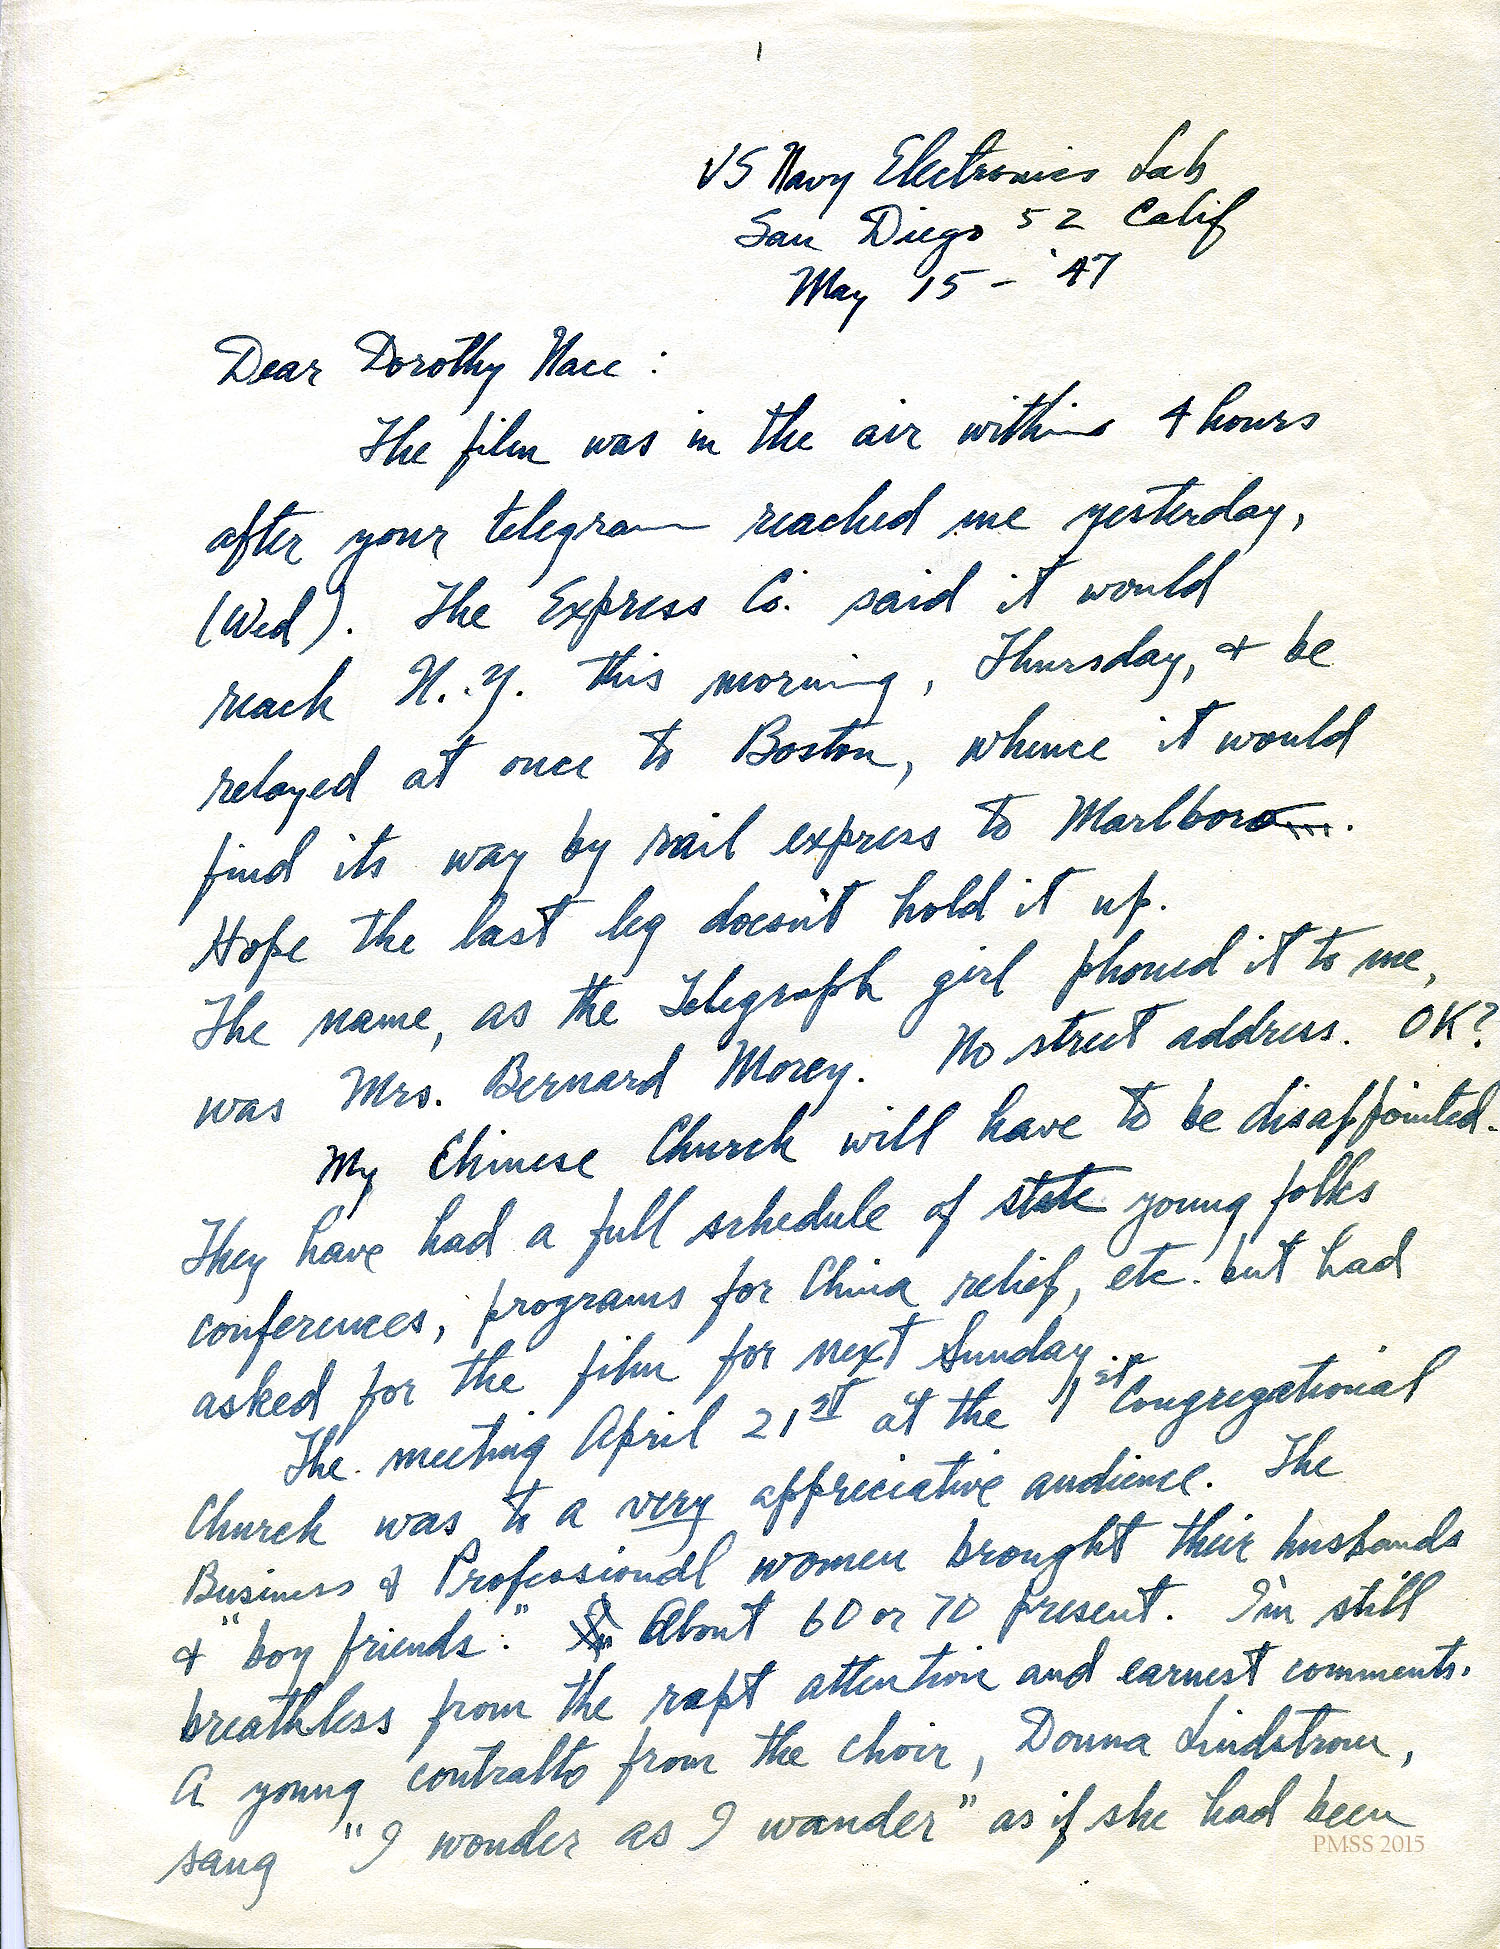 1
US Navy Electronics Lab
San Diego 52 Calif
May 15 - '47
Dear Dorothy Nace :
The film was in the air within 4 hours
after your telegram reached me yesterday,
(Wed). The Express Co. said it would
reach N.Y. this morning, Thursday, & be
relayed at once to Boston, whence it would
find its way by rail express to Marlboro.
Hope the last leg doesn't hold it up.
The name, as the Telegraph girl phoned it to me,
was Mrs. Bernard Morey. No street address. OK?
My Chinese Church will have to be disappointed.
They have had a full schedule of state young folks
conferences, programs for China relief, etc. but had
asked for the film for next Sunday.
The meeting April 21st at the 1st Congregational
Church was to a very appreciative audience. The
Business & Professional women brought their husbands
& "boy friends." About 60 or 70 present. I'm still
breathless from the rapt attention and earnest comments.
A young contralto from the choir, Donna Lindstrom,
sang "I wonder as I wander" as if she had been
PMSS 2015